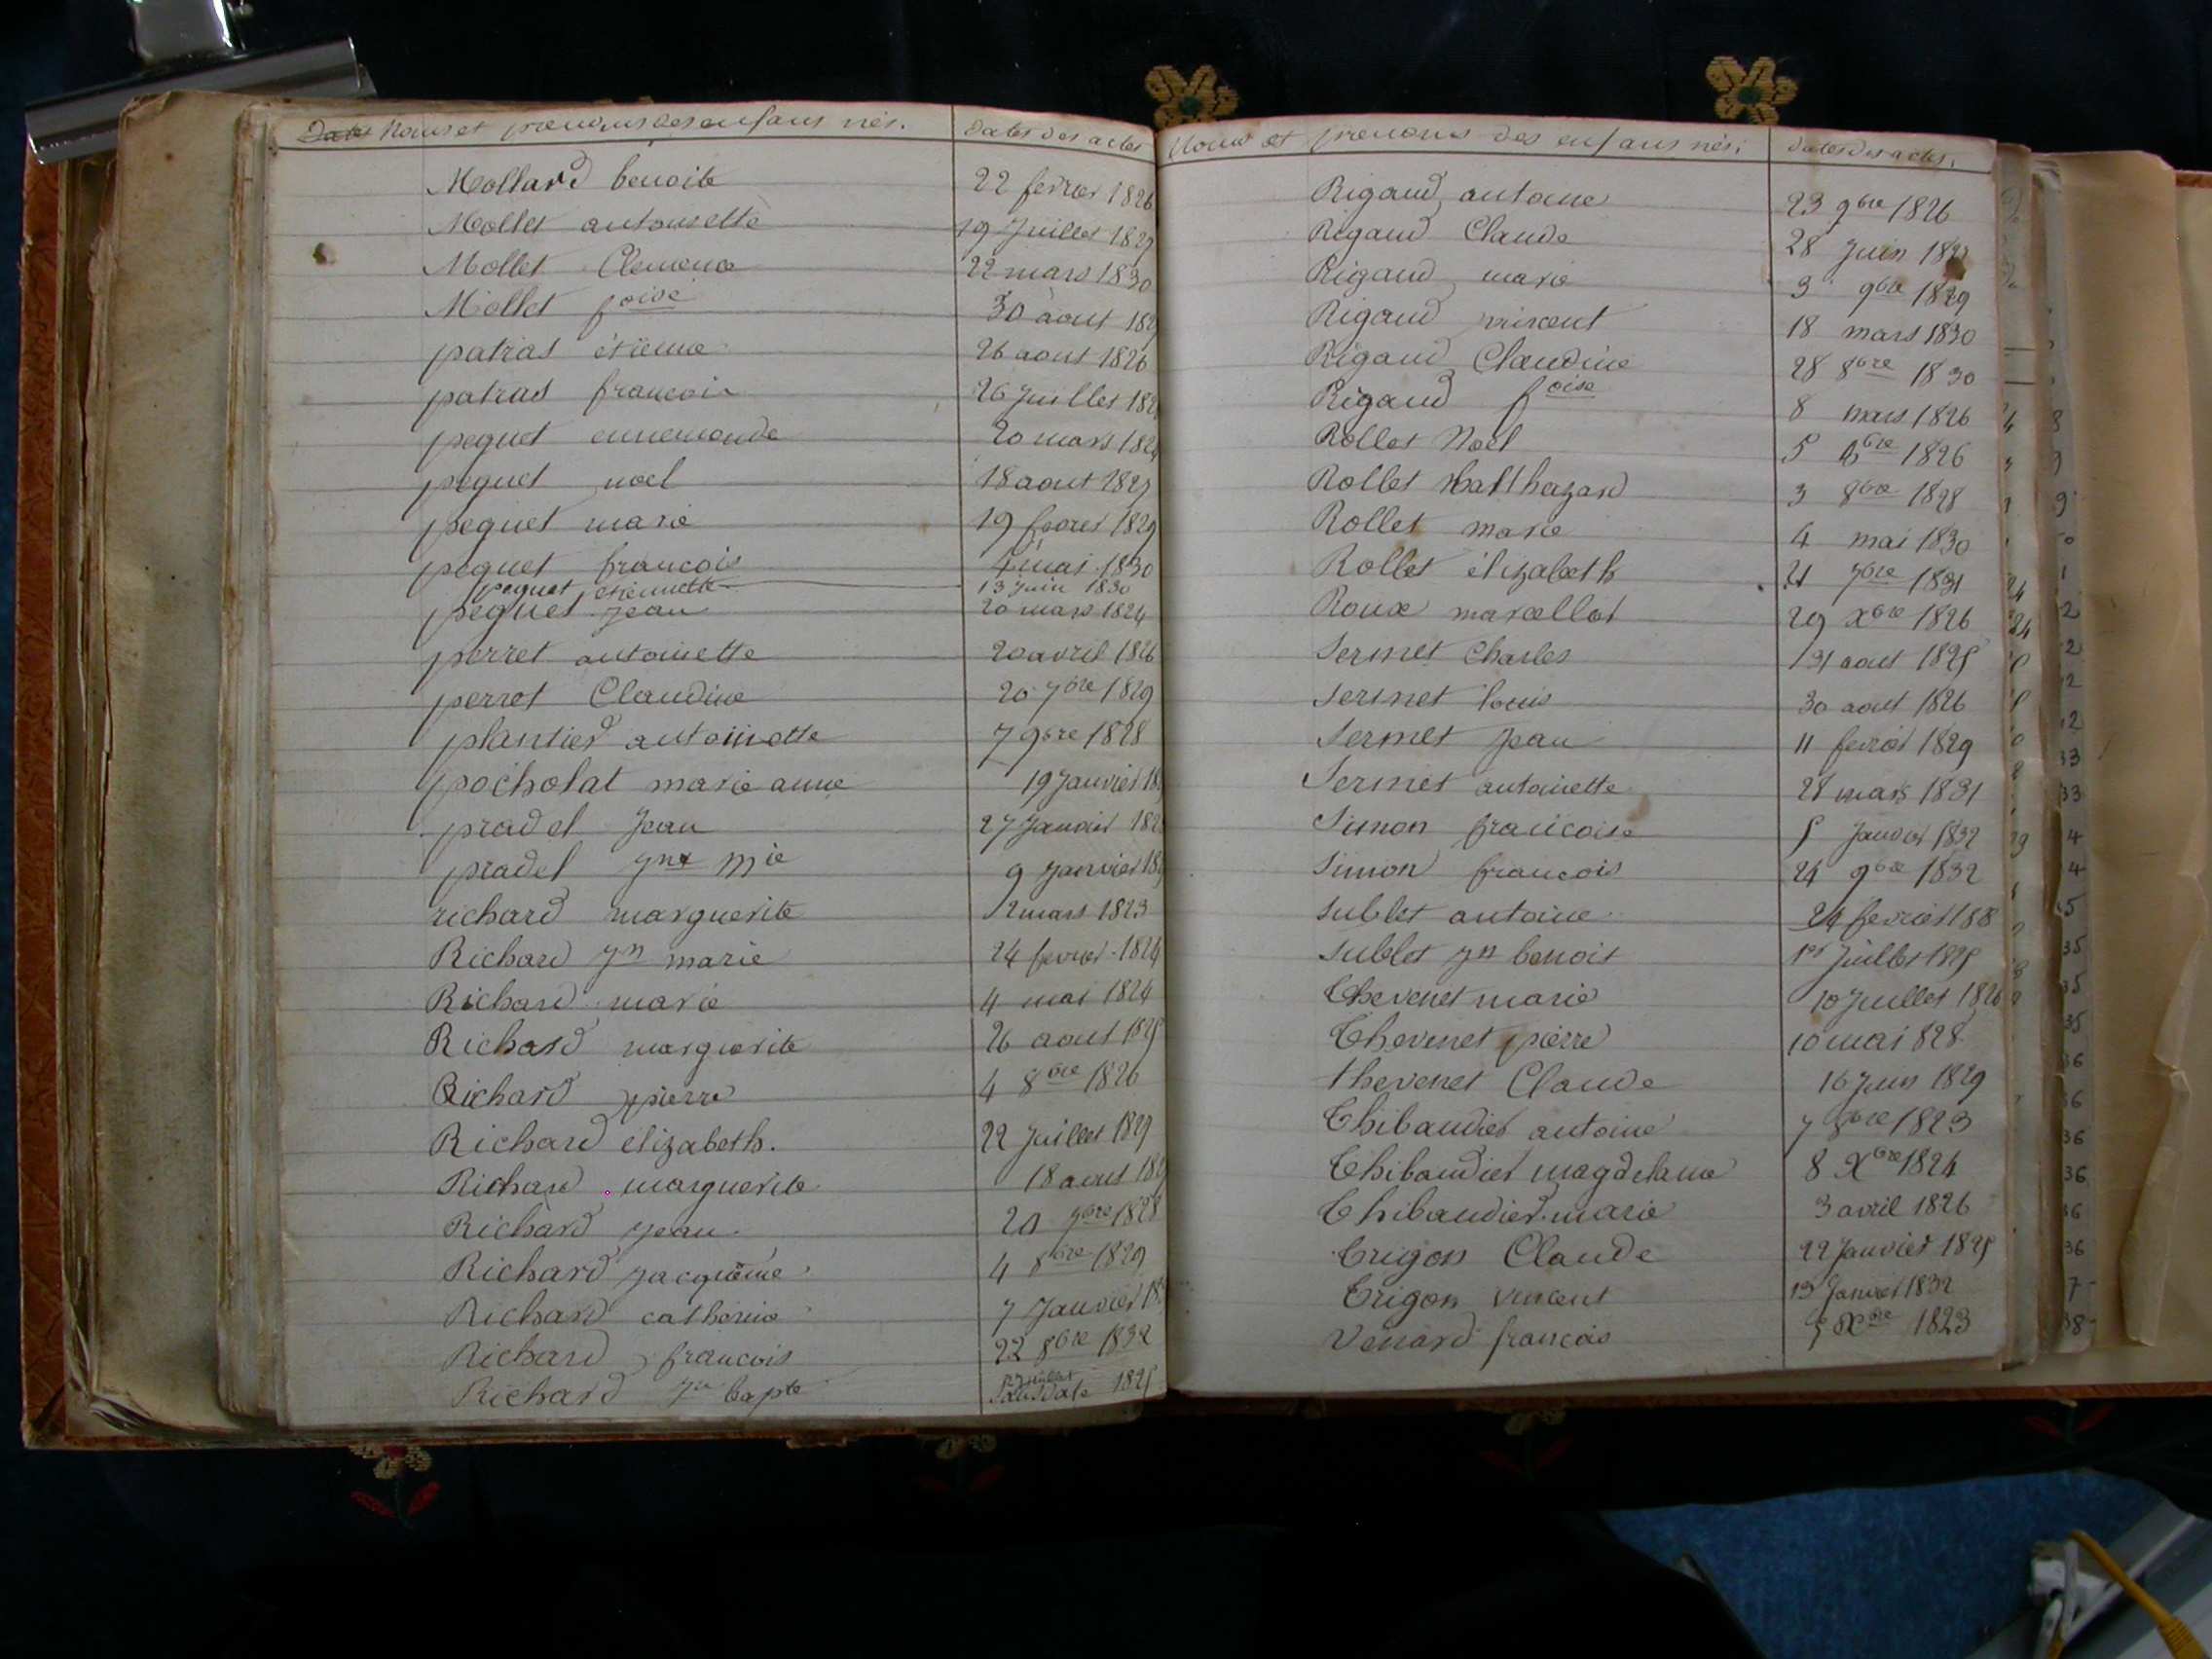 Noms et prenoms des enfans nés. Dates des actes
Mollard benoite 22 fevrier 1826
Mollet antoinette 19 Juillet 1829
Mollet Clemence 22 mars 1830
Mollet foise 30 aout
patras étienne 26 aout 1826
patras francois 26 Juillet
peguet ennemonde 20 mars 1824
peguet noel 18 aout 1827
peguet marie 19 fevrier 1829
peguet francois 4 mai 1830
peguet etiennette 13 juin 1830
peguet jean 20 mars 1824
perret antoinette 20 avril 1826
perret Claudine 20 7bre 1829
plantier antoinette 7 9bre 1828
pocholat marie anne 19 Janvier
pradel Jean 27 Janvier
pradel jne mie 9 Janvier
richard marguerite 12 mars 1823
Richard jn marie 24 fevrier 1824
Richard marie 4 mai 1824
Richard marguerite 26 aout 1825
Richard pierre 4 8bre 1826
Richard élizabeth. 22 Juillet 1827
Richard marguerite 18 aout
Richard jean 20 7bre 1828
Richard jacqueme 4 8bre 1829
Richard catherine 7 Janvier
Richard francois 22 8bre 1832
Richard jn bapte Juillet
sans date 1825
Noms et prenoms des enfans nés. dates des actes.
Rigaud antoine 23 9bre 1826
Rigaud Claude 28 Juin
Rigaud marie 3 9bre 1829
Rigaud vincent 18 mars 1830
Rigaud Claudine 28 8bre 1830
Rigaud foise 8 mars 1826
Rollet Noel 5 1826
Rollet balthazard 3 8bre 1828
Rollet marie 4 mai 1830
Rollet élizabeth 21 7bre 1831
Roux marcellot 29 xbre 1826
Sermet Charles 31 aout 1825
Sermet louis 30 aout 1826
Sermet Jean 11 fevrier 1829
Sermet antoinette 28 mars 1831
Simon francoise 5 Janvier 1832
Simon francois 24 9bre 1832
Sublet antoine 24 fevrier
Sublet jn benoit 1er Juillet 1825
Thevenet marie 10 Juillet 1826
Thevenet pierre 10 mai 828
thevenet Claude 16 Juin 1829
Thibaudier antoine 7 1823
Thibaudier magdelaine 8 Xbre 1824
Thibaudier marie 3 avril 1826
Trigon Claude 22 Janvier 1825
Trigon vincent 13 Janvier 1832
Venard francois Xbre 1823